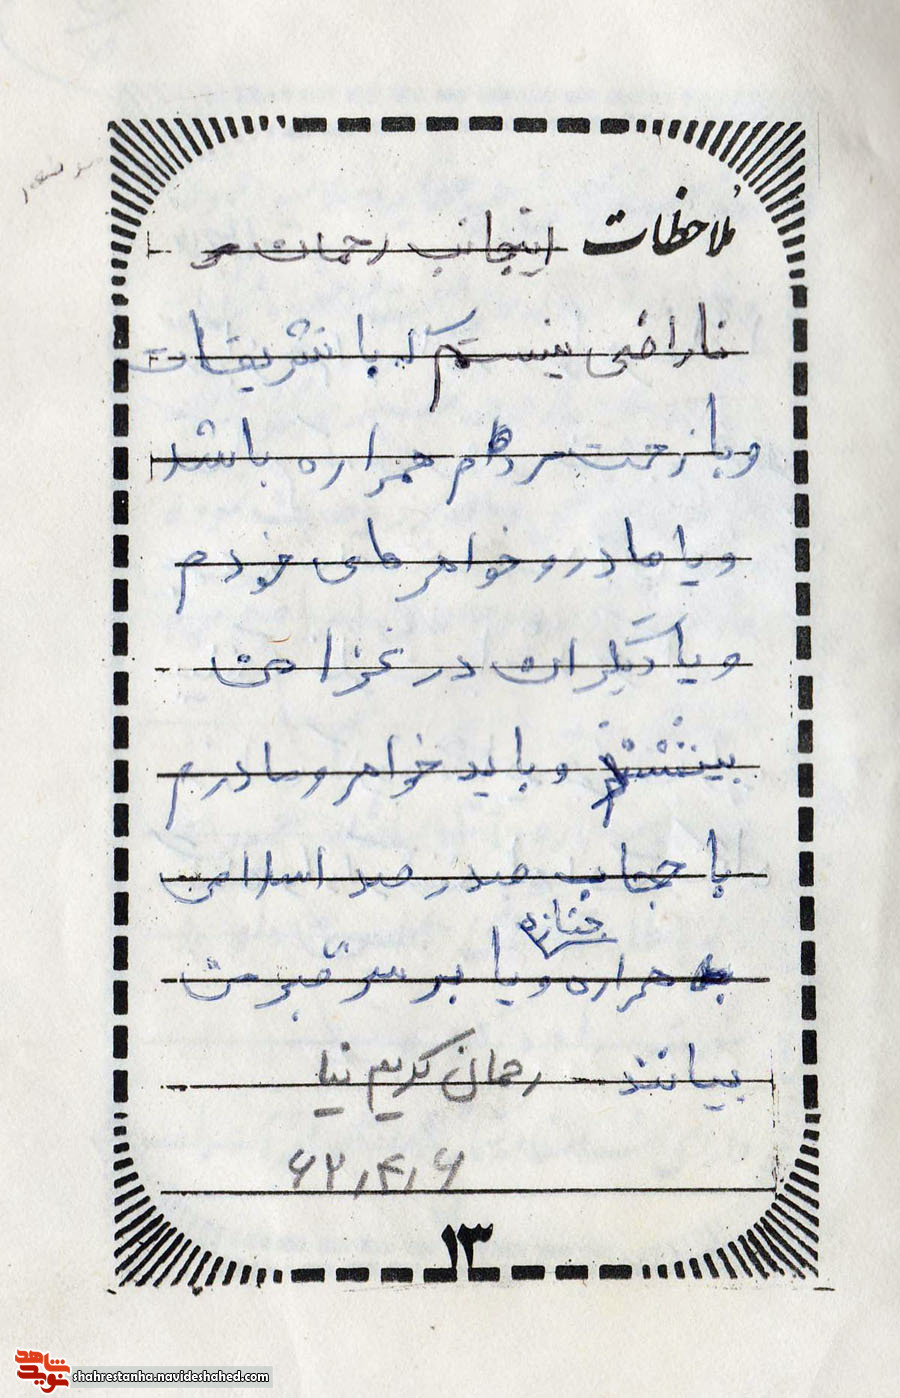 ملاحظات اینجانب رحمان
ناراضی نیستم که با تشریفات
و با زحمت مردم همراه باشد
و یا مادر و خواهر های خودم
و یا دیگران در عزا من
بیشتر و باید خواهر و مادرم
با حجاب صد در صد اسلامی
جنازه
همراه و یا بر سر قبر من
بیایند رحمان کریم نیا
۶۲,۴,۶
۱۳
نوید شاهد
shahrestanha.navideshahed.com